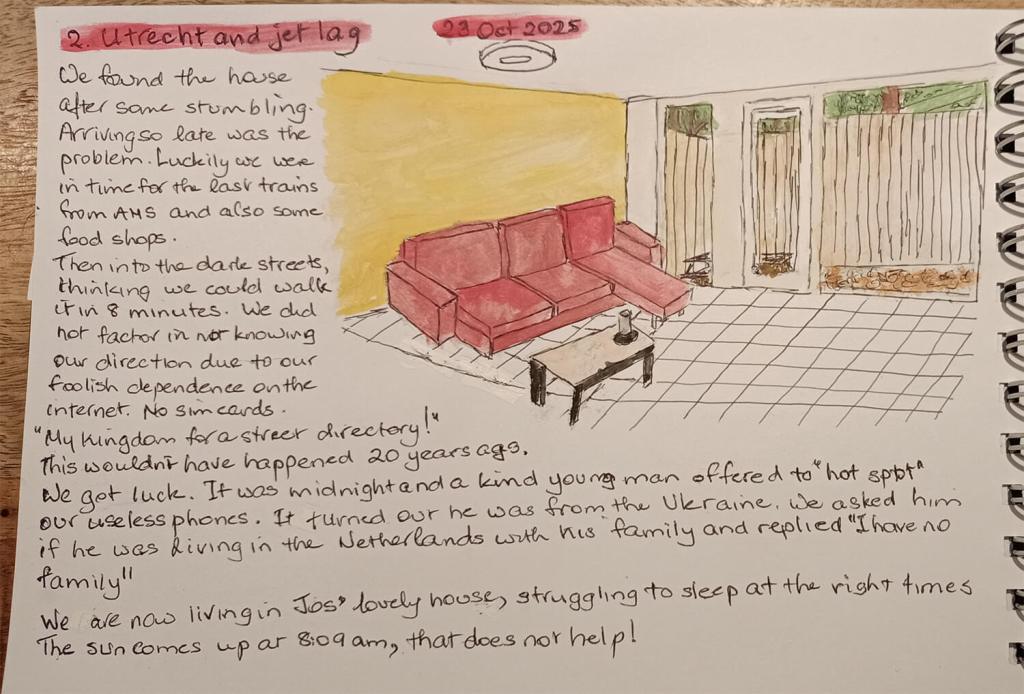 2. Utrecht and jet lag
23 Oct 2025
We found the house
after some stumbling.
Arriving so late was the
problem. Luckily we were
in time for the last trains
from AMS and also some
food shops.
Then into the dark streets,
thinking we could walk
it in 8 minutes. We did
not factor in not knowing
our direction due to our
foolish dependence on the
internet. No sim cards.
"My Kingdom for a street directory!"
This wouldn't have happened 20 years ago.
We got luck. It was midnight and a kind young man offered to "hot spot"
our useless phones. It turned out he was from the Ukraine. We asked him
if he was living in the Netherlands with his family and replied "I have no
family"
We are now living in Jos' lovely house, struggling to sleep at the right times
The sun comes up at 8:09 am, that does not help!